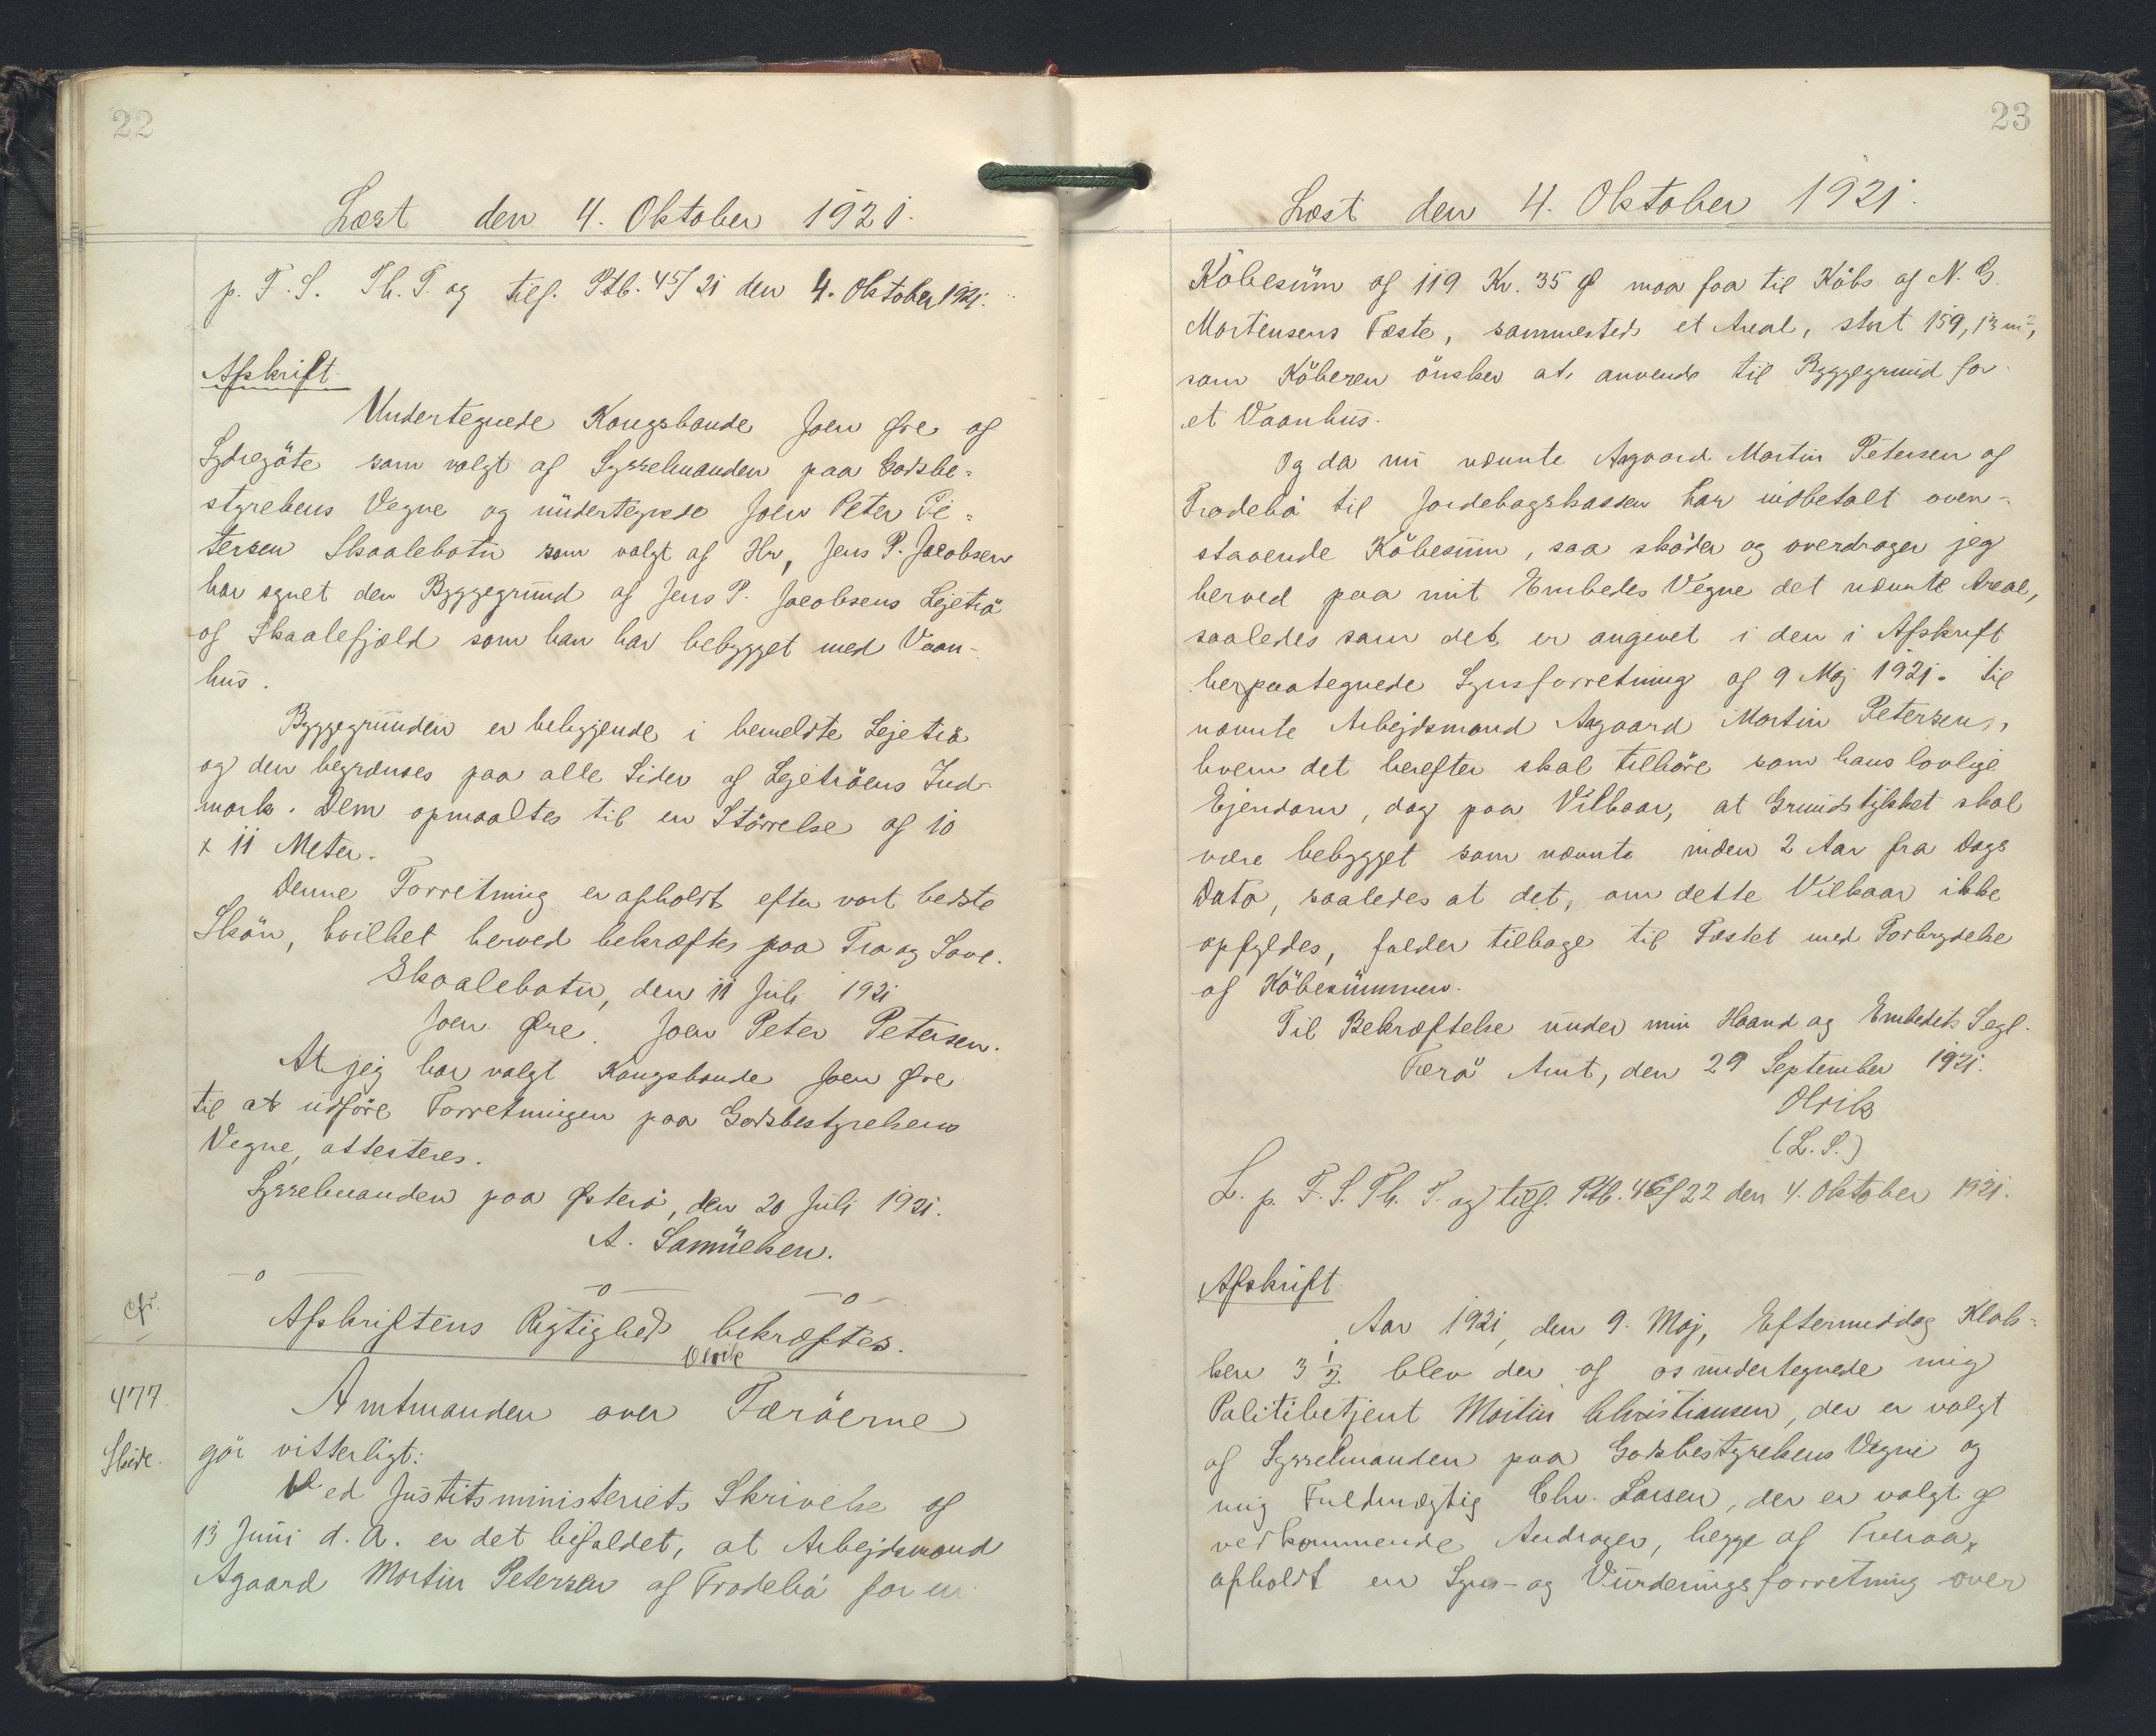 22
Læst den 4. Oktober 1921.
p. F. S. Th. T. og tilf. Ptb. 45/21 den 4. Oktober 1921.
Afskrift.
Undertegnede Kongsbonde Joen Øre af
Sydregöte som valgt af Sysselmanden paa Godsbe=
styrelsens Vegne og undertegnede Joen Peter Pe=
tersen Skaalebotn som valgt af Hr, Jens P. Jacobsen
har synet den Byggegrund af Jens P. Jacobsens Lejetrö
af Skaalefjæld som han har bebygget med Vaan-
hus.
Byggegrunden er beliggende i bemeldte Lejetrö
og den begrænses paa alle Sider af Lejetröens Ind-
mark. Dem opmaaltes til en Störrelse af 10
x 11 Meter.
Denne Forretning er afholdt efter vort bedste
Skön, hvilket herved bekræftes paa Tro og Love.
Skaalebotn, den 11 Juli 1921
Joen Øre. Joen Peter Petersen.
At jeg har valgt Kongsbonde Joen Øre
til at udföre Forretningen paa Godsbestyrelsens
Vegne, attesteres.
Sysselmanden paa Østerö, den 20 Juli 1921.
A. Samuelsen.
cfr.
Afskriftens Rigtighed bekræftes.
Olrik
477
Skøde.
Amtmanden over Færöerne
gör vitterligt:
Ved Justitsministeriets Skrivelse af
13 Juni d. A. er det bifaldet, at Arbejdsmand
Agaard Martin Petersen af Frodebö for en
23
Læst den 4. Oktober 1921.
Köbesum af 119 Kr. 35 Ø maa faa til Köbs af N. G.
Mortensens Fæste, sammesteds et Areal, stort 159,13 m²,
som Köberen önsker at anvende til Byggegrund for
et Vaanhus.
Og da nu nævnte Aagaard Martin Petersen af
Frodebö til Jordebogskassen har indbetalt oven-
staaende Köbesum, saa sköder og overdrager jeg
herved paa mit Embedes Vegne det nævnte Areal,
saaledes som det er angivet i den i Afskrift
herpaategnede Synsforretning af 9 Maj 1921. til
nævnte Arbejdsmand Aagaard Martin Petersen,
hvem det herefter skal tilhöre som hans lovlige
Ejendom, dog paa Vilkaar, at Grundstykket skal
være bebygget som nævnte inden 2 Aar fra Dags
Dato, saaledes at det, om dette Vilkaar ikke
opfyldes, falder tilbage til Fæstet med Forbrydelse
af Köbesummen.
Til Bekræftelse under min Haand og Embedets Segl.
Færö Amt, den 29 September 1921.
Olrik
(L. S.)
L. p. F. S. Th. T. og tilf. Ptb. 46/22 den 4. Oktober 1921.
Afskrift.
Aar 1921, den 9. Maj, Eftermiddag Klok=
ken 3 1/2 blev der af os undertegnede mig
Politibetjent Martin Christiansen, der er valgt
af Sysselmanden paa Godsbestyrelsens Vegne og
mig Fuldmægtig Chr. Larsen, der er valgt af
vedkommende Andrager, begge af Tveraa,
afholdt en Syns- og Vurderingsforretning over